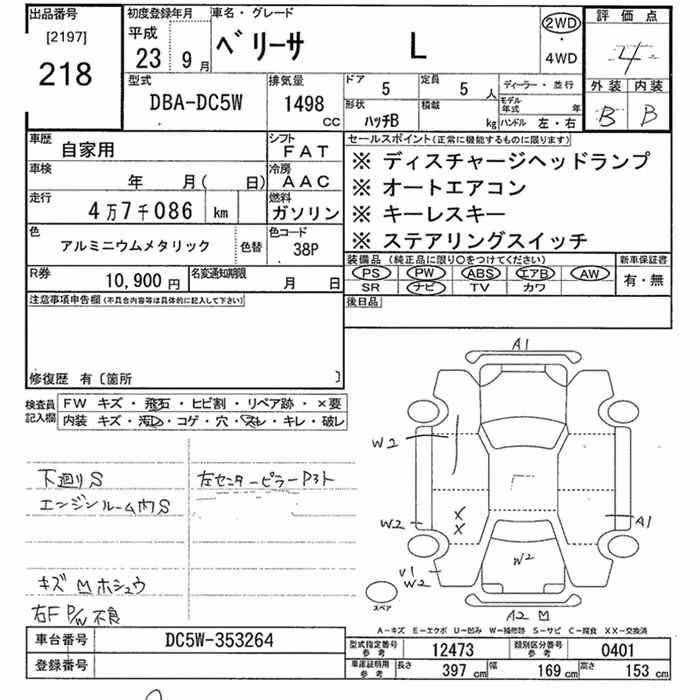 出品番号
[2197]
218
初度登録年月
平成
23 9 月
車名・グレード
ベリーサ L
2WD
・
4WD
評価点
4
外装 内装
B B
型式
DBA-DC5W
排気量
1498
CC
ドア 5
定員 5 人
形状 ハッチB
積載 kg
ディーラー・並行
モデル年式 年
ハンドル 左・右
車歴
自家用
シフト
FAT
車検
年 月( 日)
冷房
AAC
走行
4万7千086 km
燃料
ガソリン
色
アルミニウムメタリック
色替
色コード
38P
R券
10,900 円
名変通知期限
月 日
セールスポイント(正常に機能するものに限ります)
※ ディスチャージヘッドランプ
※ オートエアコン
※ キーレスキー
※ ステアリングスイッチ
装備品(純正品に限り○をつけてください)
PS PW ABS エアB AW
SR ナビ TV カワ
新車保証書
有・無
後日品
注意事項申告欄(不具合内容等は具体的に記入して下さい)
修復歴 有〔箇所 〕
検査員
記入欄
FW キズ・飛石・ヒビ割・リペア跡・×要
内装 キズ・汚れ・コゲ・穴・スレ・キレ・破レ
下廻りS
エンジンルーム内S
左センターピラーP3ト
キズM ホシュウ
右F P/W 不良
A1
W2
W2
V1
W2
X
X
W2
A1
A2 M
スペア
A-キズ E-エクボ U-凹み W-補修跡 S-サビ C-腐食 XX-交換済
車台番号 DC5W-353264
登録番号
型式指定番号
参考
12473
類別区分番号
参考
0401
車庫証明用
参考
長さ 397 cm 幅 169 cm 高さ 153 cm